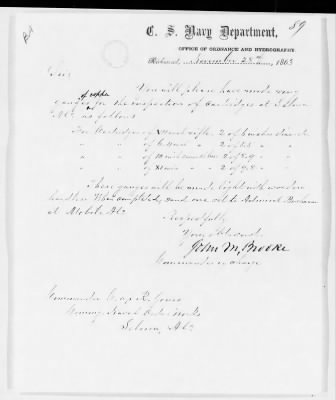 89
C. S. Navy Department,
OFFICE OF ORDNANCE AND HYDROGRAPHY,
Richmond, November 28th, 1863
Sir:
You will please have made ring
of copper
gauges for the inspection of Cartridges at Selma
Ala as follows
For Cartridges of rifle 2 of 6 inches diameter
of 6.4 inch " 2 of 5.5 " "
of 10 inch 2 of " "
of " 2 of " "
These gauges will be made light with wooden
handles. When completed, send one set to Admiral Buchanan
at Mobile Ala
Respectfully
Your obt servt.
John M. Brooke
Commander in charge
Commander C. ap R. Jones
Commg Naval Works
Selma, Ala